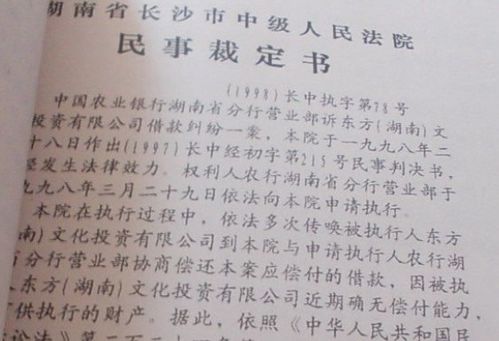 湖南省长沙市中级人民法院
民事裁定书
(1998)长中执字第78号
中国农业银行湖南省分行营业部诉东方(湖南)文
投资有限公司借款纠纷一案，本院于一九九八年二
十八日作出(1997)长中经初字第215号民事判决书，
经发生法律效力。权利人农行湖南省分行营业部于
九九八年三月二十九日依法向本院申请执行。
本院在执行过程中，依法多次传唤被执行人东方
南)文化投资有限公司到本院与申请执行人农行湖
省分行营业部协商偿还本案应偿付的借款，因被执
人东方(湖南)文化投资有限公司近期确无偿付能力，
可供执行的财产。据此，依照《中华人民共和国民
诉讼法》第二百